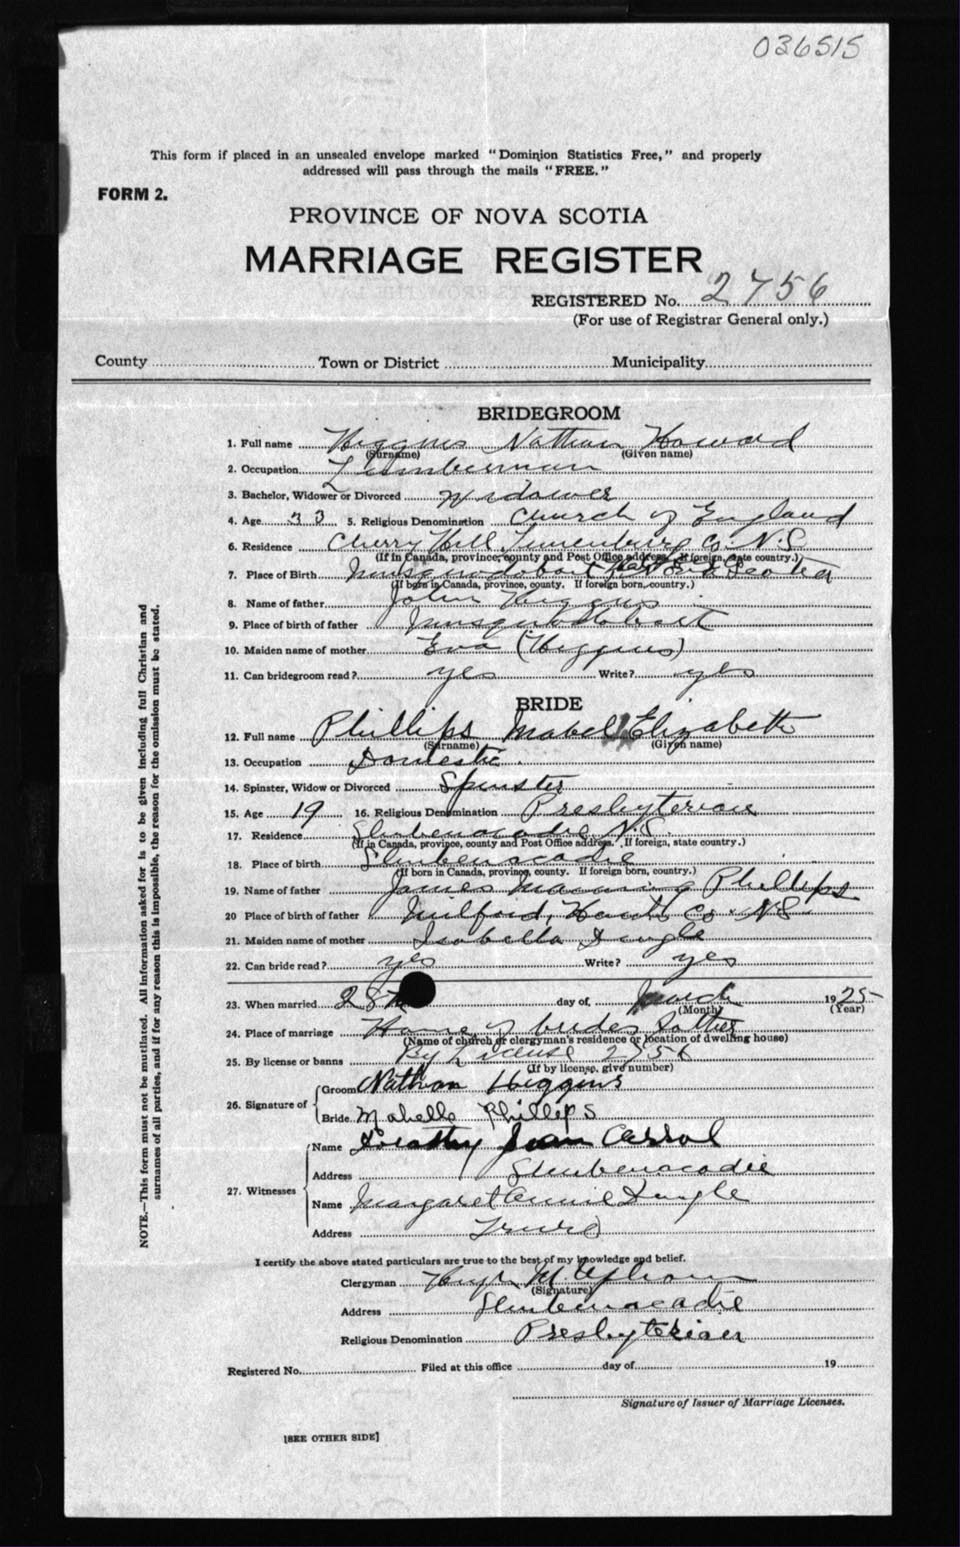 036515
This form if placed in an unsealed envelope marked "Dominion Statistics Free," and properly
addressed will pass through the mails "FREE."
FORM 2.
PROVINCE OF NOVA SCOTIA
MARRIAGE REGISTER
REGISTERED No. 2756
(For use of Registrar General only.)
County Town or District Municipality
BRIDEGROOM
1. Full name Higgins Nathan Howard
(Surname) (Given name)
2. Occupation Lumberman
3. Bachelor, Widower or Divorced Widower
4. Age 33 5. Religious Denomination Church of England
6. Residence Cherry Hill Lunenburg Co. N.S.
(If in Canada, province, county and Post Office address. If foreign, state country.)
7. Place of Birth Musquodoboit Nova Scotia
(If born in Canada, province, county. If foreign born, country.)
8. Name of father John Higgins
9. Place of birth of father Musquodoboit
10. Maiden name of mother Eva (Higgins)
11. Can bridegroom read? yes Write? yes
BRIDE
12. Full name Phillips Mabel Elizabeth
(Surname) (Given name)
13. Occupation Domestic.
14. Spinster, Widow or Divorced Spinster
15. Age 19 16. Religious Denomination Presbyterian
17. Residence Shubenacadie N.S.
(If in Canada, province, county and Post Office address. If foreign, state country.)
18. Place of birth Shubenacadie
(If born in Canada, province, county. If foreign born, country.)
19. Name of father James Manning Phillips
20 Place of birth of father Milford, Hants Co. N.S.
21. Maiden name of mother Isabella Dingle
22. Can bride read? yes Write? yes
23. When married 28th day of, March 1925
(Month) (Year)
24. Place of marriage Home of brides father
(Name of church or clergyman's residence or location of dwelling house)
25. By license or banns By License 2756
(If by license, give number)
26. Signature of
Groom Nathan Higgins
Bride Mabelle Phillips
27. Witnesses
Name Dorothy Jean Carrol
Address Shubenacadie
Name Margaret Annie Dingle
Address Truro
I certify the above stated particulars are true to the best of my knowledge and belief.
Clergyman Hugh M. Upham
(Signature)
Address Shubenacadie
Religious Denomination Presbyterian
Registered No. Filed at this office day of 19
Signature of Issuer of Marriage Licenses.
[SEE OTHER SIDE]
NOTE.—This form must not be mutilated. All information asked for is to be given including full Christian and
surnames of all parties, and if for any reason this is impossible, the reason for the omission must be stated.